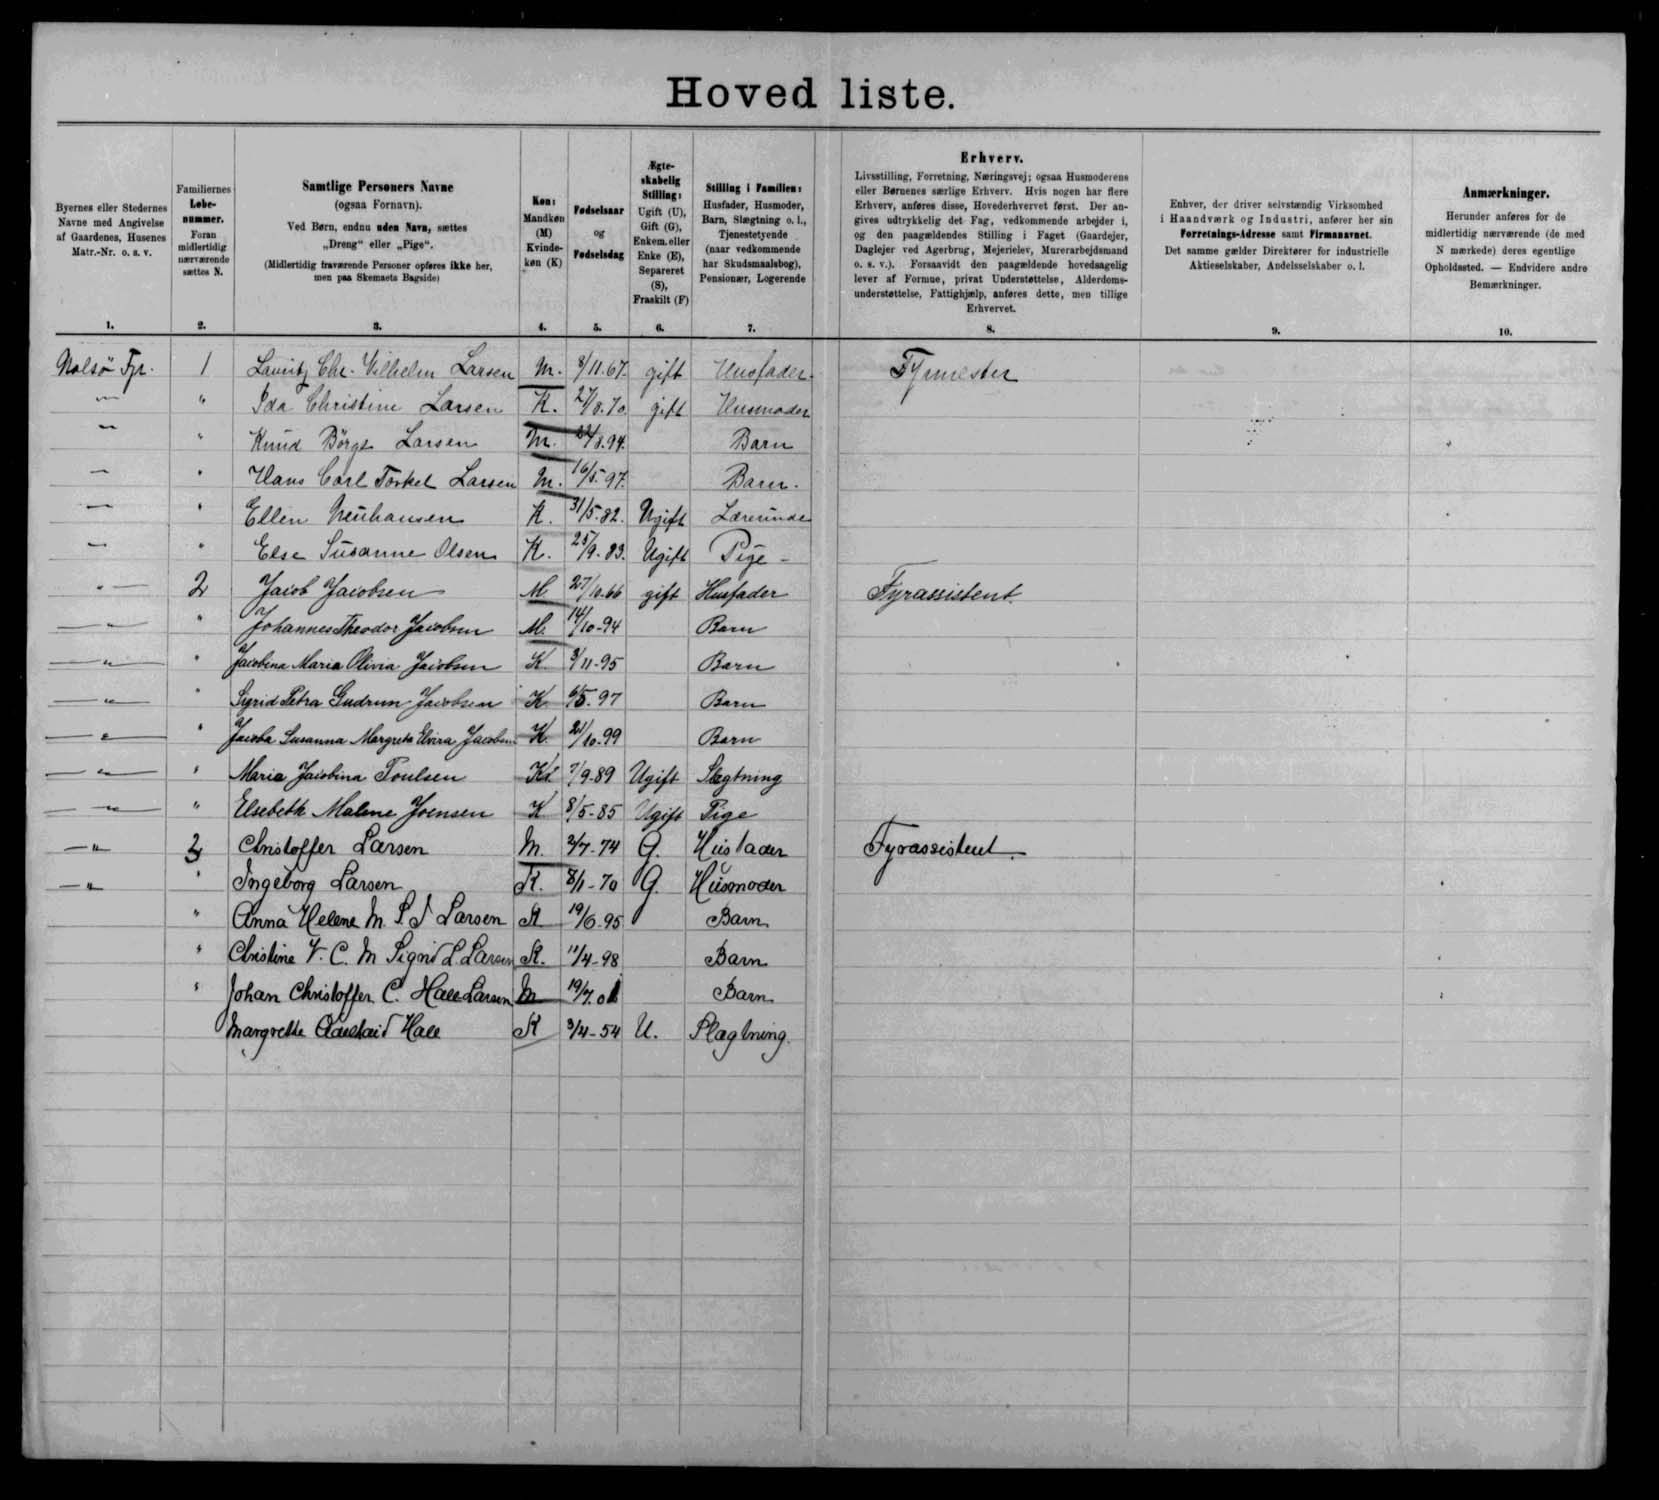 Hoved liste.
Byernes eller Stedernes
Navne med Angivelse
af Gaardenes, Husenes
Matr.-Nr. o. s. v.
1.
Familiernes
Løbe-
nummer.
Foran
midlertidig
nærværende
sættes N.
2.
Samtlige Personers Navne
(ogsaa Fornavn).
Ved Børn, endnu uden Navn, sættes
„Dreng“ eller „Pige“.
(Midlertidig fraværende Personer opføres ikke her,
men paa Skemaets Bagside)
3.
Køn:
Mandkøn
(M)
Kvinde-
køn (K)
4.
Fødselsaar
og
Fødselsdag
5.
Ægte-
skabelig
Stilling:
Ugift (U),
Gift (G),
Enkem. eller
Enke (E),
Separeret
(S),
Fraskilt (F)
6.
Stilling i Familien:
Husfader, Husmoder,
Barn, Slægtning o. l.,
Tjenestetyende
(naar vedkommende
har Skudsmaalsbog),
Pensionær, Logerende
7.
Erhverv.
Livsstilling, Forretning, Næringsvej; ogsaa Husmoderens
eller Børnenes særlige Erhverv. Hvis nogen har flere
Erhverv, anføres disse, Hovederhvervet først. Der an-
gives udtrykkelig det Fag, vedkommende arbejder i,
og den paagældendes Stilling i Faget (Gaardejer,
Daglejer ved Agerbrug, Mejerielev, Murerarbejdsmand
o. s. v.). Forsaavidt den paagældende hovedsagelig
lever af Formue, privat Understøttelse, Alderdoms-
understøttelse, Fattighjælp, anføres dette, men tillige
Erhvervet.
8.
Enhver, der driver selvstændig Virksomhed
i Haandværk og Industri, anfører her sin
Forretnings-Adresse samt Firmanavnet.
Det samme gælder Direktører for industrielle
Aktieselskaber, Andelsselskaber o. l.
9.
Anmærkninger.
Herunder anføres for de
midlertidig nærværende (de med
N mærkede) deres egentlige
Opholdssted. — Endvidere andre
Bemærkninger.
10.
Nolsö Fyr. 1 Lauritz Chr. Vilhelm Larsen M. 8/11.67. gift Husfader. Fyrmester
" " Ida Christine Larsen K. 27/8.70. gift Husmoder
" " Knud Börge Larsen M. /8.94. Barn
" " Hans Carl Torkel Larsen M. 16/5.97. Barn.
" " Ellen Neuhausen K. 31/5.82. Ugift Lærerinde
" " Else Susanne Olsen K. 25/9.83. Ugift Pige -
" 2 Jacob Jacobsen M 27/10.66 gift Husfader Fyrassistent.
" " Johannes Theodor Jacobsen M. 14/10-94 Barn
" " Jacobina Maria Olivia Jacobsen K 3/11-95 Barn
" " Sigrid Petra Gudrun Jacobsen K 6/5-97 Barn
" " Jacoba Susanna Margreta Elvira Jacobsen K. 21/10.99 Barn
" " Maria Jacobina Poulsen K 7/9-89 Ugift Slægtning
" " Elsebeth Malene Joensen K 8/5-85 Ugift Pige
" 3 Christoffer Larsen M. 2/7-74 G. Husfader Fyrassistent.
" " Ingeborg Larsen K. 8/1-70 G. Husmoder
" Anna Helene M. P. J Larsen K 19/6-95 Barn
" Christine V. C. M Sigrid L Larsen K. 11/4-98 Barn
" Johan Christoffer C. Hall Larsen M 19/7.01 Barn
Margrethe Adelaid Hall K 3/4-54 U. Slægtning.